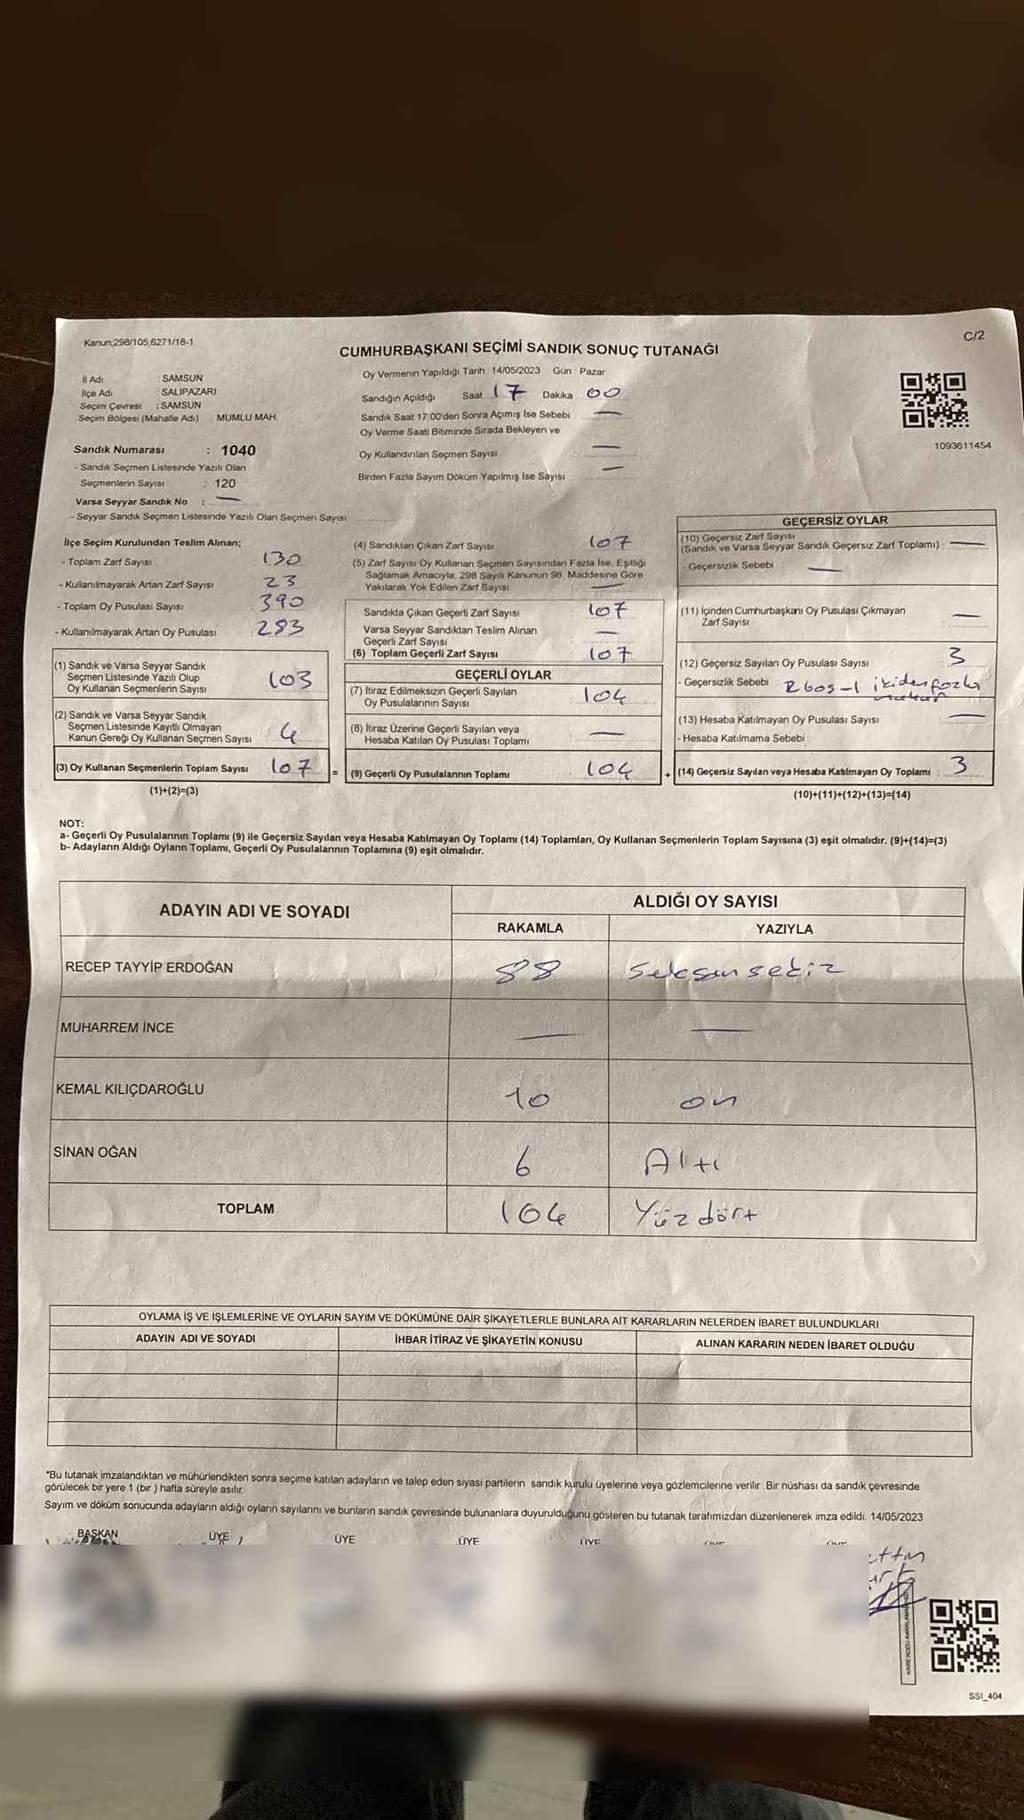 Kanun;298/105,6271/18-1
C/2
CUMHURBAŞKANI SEÇİMİ SANDIK SONUÇ TUTANAĞI
İl Adı : SAMSUN
İlçe Adı : SALIPAZARI
Seçim Çevresi : SAMSUN
Seçim Bölgesi (Mahalle Adı) MUMLU MAH.
Oy Vermenin Yapıldığı Tarih 14/05/2023 Gün Pazar
Sandığın Açıldığı Saat 17 Dakika 00
Sandık Saat 17:00'den Sonra Açımış İse Sebebi —
Oy Verme Saati Bitiminde Sırada Bekleyen ve
Oy Kullandırılan Seçmen Sayısı —
Birden Fazla Sayım Döküm Yapılmış İse Sayısı —
1093611454
Sandık Numarası : 1040
- Sandık Seçmen Listesinde Yazılı Olan
Seçmenlerin Sayısı : 120
Varsa Seyyar Sandık No : —
- Seyyar Sandık Seçmen Listesinde Yazılı Olan Seçmen Sayısı
İlçe Seçim Kurulundan Teslim Alınan;
- Toplam Zarf Sayısı 130
- Kullanılmayarak Artan Zarf Sayısı 23
- Toplam Oy Pusulası Sayısı 390
- Kullanılmayarak Artan Oy Pusulası 283
(1) Sandık ve Varsa Seyyar Sandık
Seçmen Listesinde Yazılı Olup
Oy Kullanan Seçmenlerin Sayısı 103
(2) Sandık ve Varsa Seyyar Sandık
Seçmen Listesinde Kayıtlı Olmayan
Kanun Gereği Oy Kullanan Seçmen Sayısı 4
(3) Oy Kullanan Seçmenlerin Toplam Sayısı 107
(1)+(2)=(3)
(4) Sandıktan Çıkan Zarf Sayısı 107
(5) Zarf Sayısı Oy Kullanan Seçmen Sayısından Fazla İse, Eşitliği
Sağlamak Amacıyla, 298 Sayılı Kanunun 98. Maddesine Göre
Yakılarak Yok Edilen Zarf Sayısı —
Sandıkta Çıkan Geçerli Zarf Sayısı 107
Varsa Seyyar Sandıktan Teslim Alınan
Geçerli Zarf Sayısı —
(6) Toplam Geçerli Zarf Sayısı 107
GEÇERLİ OYLAR
(7) İtiraz Edilmeksizin Geçerli Sayılan
Oy Pusulalarının Sayısı 104
(8) İtiraz Üzerine Geçerli Sayılan veya
Hesaba Katılan Oy Pusulası Toplamı —
= (9) Geçerli Oy Pusulalarının Toplamı 104
GEÇERSİZ OYLAR
(10) Geçersiz Zarf Sayısı
(Sandık ve Varsa Seyyar Sandık Geçersiz Zarf Toplamı) : —
- Geçersizlik Sebebi —
(11) İçinden Cumhurbaşkanı Oy Pusulası Çıkmayan
Zarf Sayısı —
(12) Geçersiz Sayılan Oy Pusulası Sayısı 3
- Geçersizlik Sebebi 2 boş-1 ikiden fazla
mühür
(13) Hesaba Katılmayan Oy Pusulası Sayısı —
- Hesaba Katılmama Sebebi
+ (14) Geçersiz Sayılan veya Hesaba Katılmayan Oy Toplamı 3
(10)+(11)+(12)+(13)=(14)
NOT:
a- Geçerli Oy Pusulalarının Toplamı (9) ile Geçersiz Sayılan veya Hesaba Katılmayan Oy Toplamı (14) Toplamları, Oy Kullanan Seçmenlerin Toplam Sayısına (3) eşit olmalıdır. (9)+(14)=(3)
b- Adayların Aldığı Oyların Toplamı, Geçerli Oy Pusulalarının Toplamına (9) eşit olmalıdır.
ADAYIN ADI VE SOYADI
ALDIĞI OY SAYISI
RAKAMLA YAZIYLA
RECEP TAYYİP ERDOĞAN 88 Seksensekiz
MUHARREM İNCE — —
KEMAL KILIÇDAROĞLU 10 on
SİNAN OĞAN 6 Altı
TOPLAM 104 Yüzdört
OYLAMA İŞ VE İŞLEMLERİNE VE OYLARIN SAYIM VE DÖKÜMÜNE DAİR ŞİKAYETLERLE BUNLARA AİT KARARLARIN NELERDEN İBARET BULUNDUKLARI
ADAYIN ADI VE SOYADI İHBAR İTİRAZ VE ŞİKAYETİN KONUSU ALINAN KARARIN NEDEN İBARET OLDUĞU
*Bu tutanak imzalandıktan ve mühürlendikten sonra seçime katılan adayların ve talep eden siyasi partilerin sandık kurulu üyelerine veya gözlemcilerine verilir. Bir nüshası da sandık çevresinde
görülecek bir yere 1 (bir ) hafta süreyle asılır.
Sayım ve döküm sonucunda adayların aldığı oyların sayılarını ve bunların sandık çevresinde bulunanlara duyurulduğunu gösteren bu tutanak tarafımızdan düzenlenerek imza edildi. 14/05/2023
BAŞKAN ÜYE ÜYE ÜYE ÜYE
SSI_404